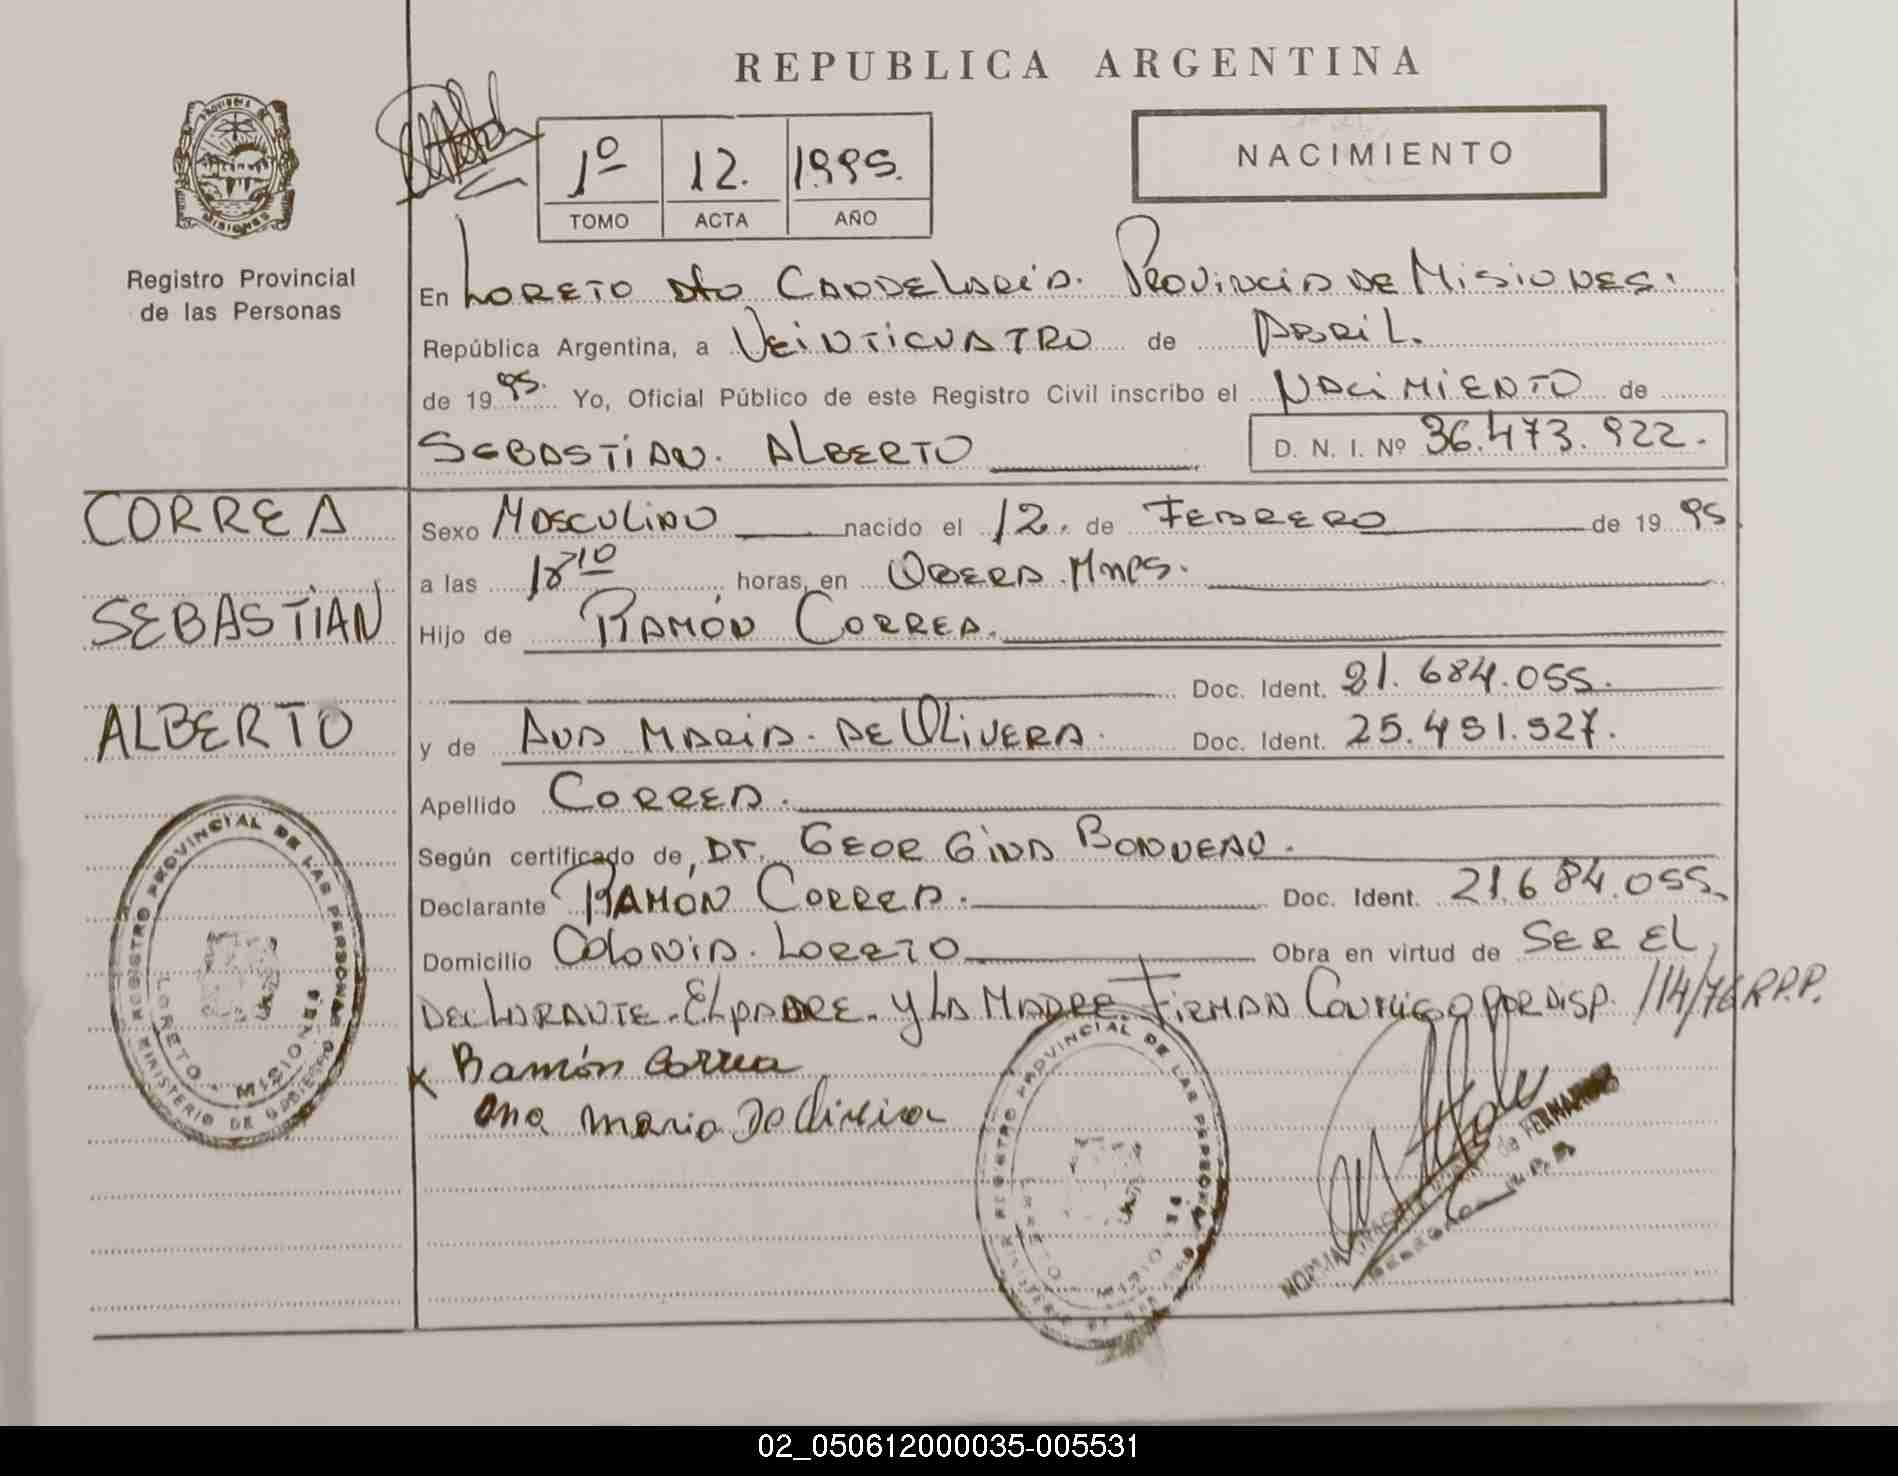 REPUBLICA ARGENTINA
NACIMIENTO
PROVINCIA DE MISIONES
Registro Provincial
de las Personas
1º 12. 1995.
TOMO ACTA AÑO
En LORETO Dto CANDELARIA. PROVINCIA DE MISIONES.
República Argentina, a VEINTICUATRO de ABRIL.
de 1995. Yo, Oficial Público de este Registro Civil inscribo el NACIMIENTO de
SEBASTIAN. ALBERTO D. N. I. Nº 36.473.922.
CORREA
SEBASTIAN
ALBERTO
Sexo MASCULINO nacido el 12. de FEBRERO de 1995
a las 18 10 horas, en OBERA. Mnes.
Hijo de RAMÓN CORREA.
Doc. Ident. 21.684.055.
y de ANA MARIA. DE OLIVERA. Doc. Ident. 25.451.527.
Apellido CORREA.
Según certificado de, Dr. GEORGINA
Declarante RAMÓN CORREA. Doc. Ident. 21.684.055.
Domicilio COLONIA. LORETO Obra en virtud de SER EL
DECLARANTE. EL PADRE. Y LA MADRE. FIRMAN CONMIGO POR DISP. 114/76 R.P.P.
x Ramón Correa
Ana Maria De Oliveira
REGISTRO PROVINCIAL DE LAS PERSONAS
MINISTERIO DE GOBIERNO
LORETO - MISIONES
REGISTRO PROVINCIAL DE LAS PERSONAS
MINISTERIO DE
NORMA de FERNANDEZ
02_050612000035-005531